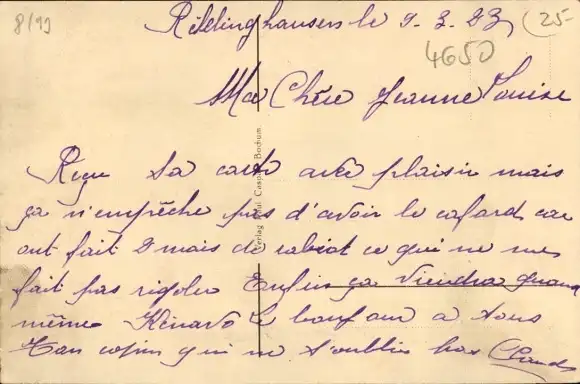 8/19
Recklinghausen le 9.3.23
(25-
4650
Ma Chère Jeanne Louise
Reçu ta carte avec plaisir mais
ça n'empêche pas d'avoir le cafard, car
ont fait 2 mais de rabiot ce qui ne me
fait pas rigoler Enfin ça viendra quand
même Kénavo Le bonjour a tous
Ton copin qui ne t'oublie pas
Verlag Bochum